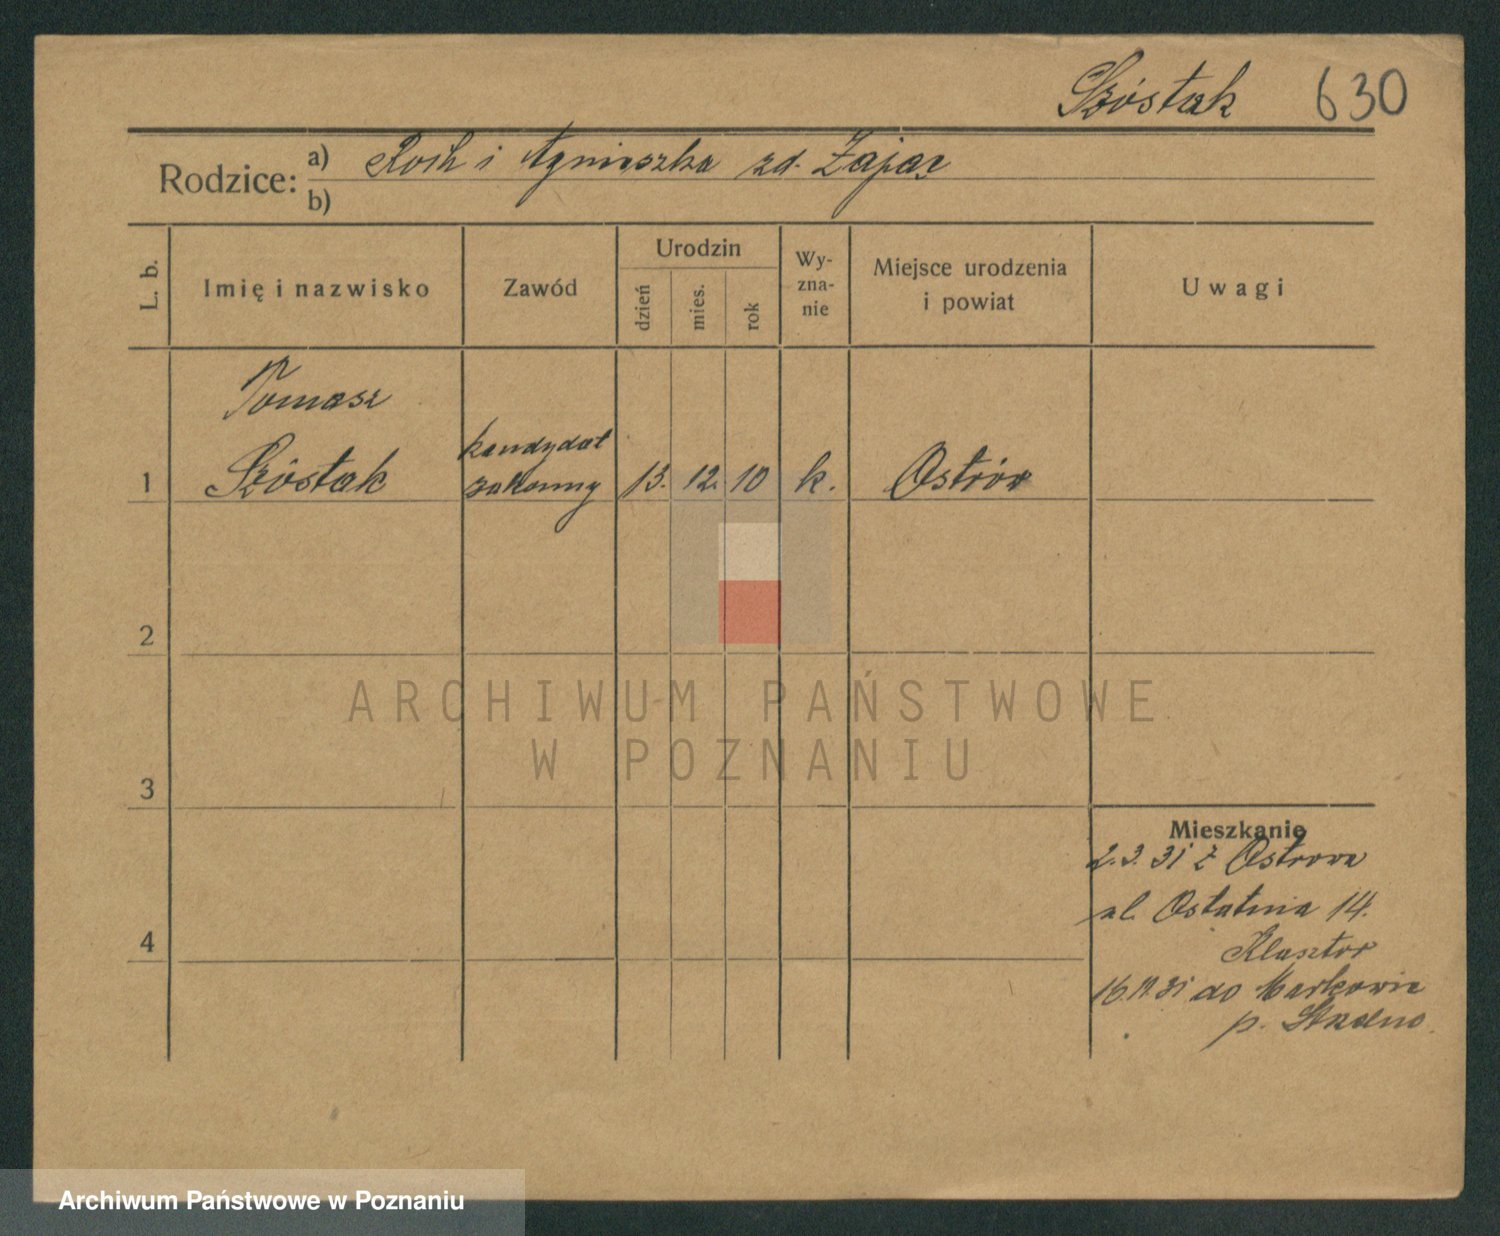 Szóstak 630
Rodzice: a) Roch i Agnieszka zd. Zając
b)
L. b. Imię i nazwisko Zawód Urodzin dzień mies. rok Wy-zna-nie Miejsce urodzenia i powiat Uwagi
Tomasz
Szóstak kandydat
1 zakonny 13. 12. 10 k. Ostrów
2
ARCHIWUM PAŃSTWOWE
W POZNANIU
3
Mieszkanie
2.3.31 z Ostrowa
ul. Ostatnia 14.
4 Klasztor
do Markowic
p. Strzelno.
Archiwum Państwowe w Poznaniu